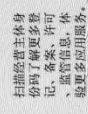 扫描经营主体身
份码了解更多登
记、备案、许可
、监管信息，体
验更多应用服务。